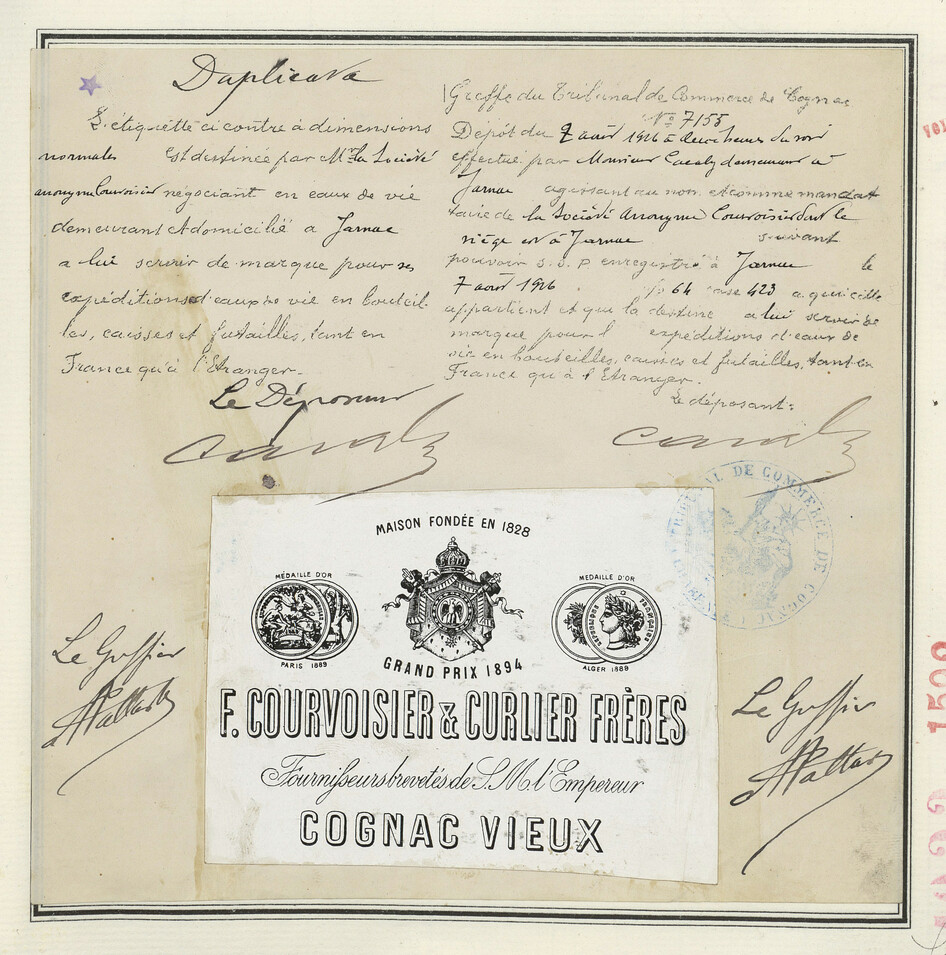 Duplicata
L'étiquette ci contre à dimensions
normales est destinée par Mr la Société
anonyme Courvoisier négociant en eaux de vie
demeurant et domicilié à Jarnac
a lui servir de marque pour ses
expéditions d'eaux de vie en bouteil
les, caisses et futailles, tant en
France qu'à l'Etranger.
Le Déposant
Greffe du Tribunal de Commerce de Cognac
No 7155
Dépôt du 7 août 1926 à deux heures du soir
effectué par Monsieur demeurant à
Jarnac agissant au nom et comme mandat
taire de la Société Anonyme Courvoisier dont le
siège est à Jarnac suivant
pouvoir S.S.P enregistré à Jarnac le
7 août 1926 fo 64 case 423 a qui cette
appartient et que la destine a lui servir de
marque pour expéditions d'eaux de
vie en bouteilles, caisses et futailles, tant en
France qu'à l'Etranger.
Le déposant:
TRIBUNAL DE COMMERCE DE COGNAC
MAISON FONDÉE EN 1828
MÉDAILLE D'OR
PARIS 1889
GRAND PRIX 1894
MEDAILLE D'OR
REPUBLIQUE FRANÇAISE
ALGER 1889
F. COURVOISIER & CURLIER FRÈRES
Fournisseurs brevetés de S.M. l'Empereur
COGNAC VIEUX
Le Greffier
Le Greffier